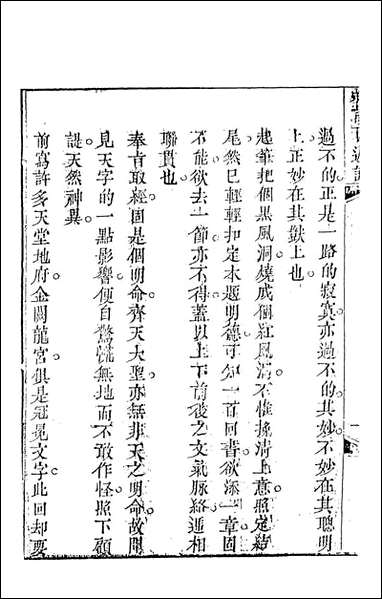 過不的正是一路的寂寞亦過不的其妙不妙在其聰明
上正妙在其獃上也
起筆把個黑風洞燒成個紅風洞不惟找清上意照定結
尾然已輕輕扣定本題明德可知一百回書欲添一章固
不能欲去一節亦不得蓋以上下前後之文氣脉絡遞相
聯貫也
奉旨取經固是個明命齊天大聖亦無非天之明命故聞
見天字的一點影響便自驚慌無地而不敢作怪照下顧
諟天然神異
前寫許多天堂地府金闕龍宮俱是冠冕文字此回却要